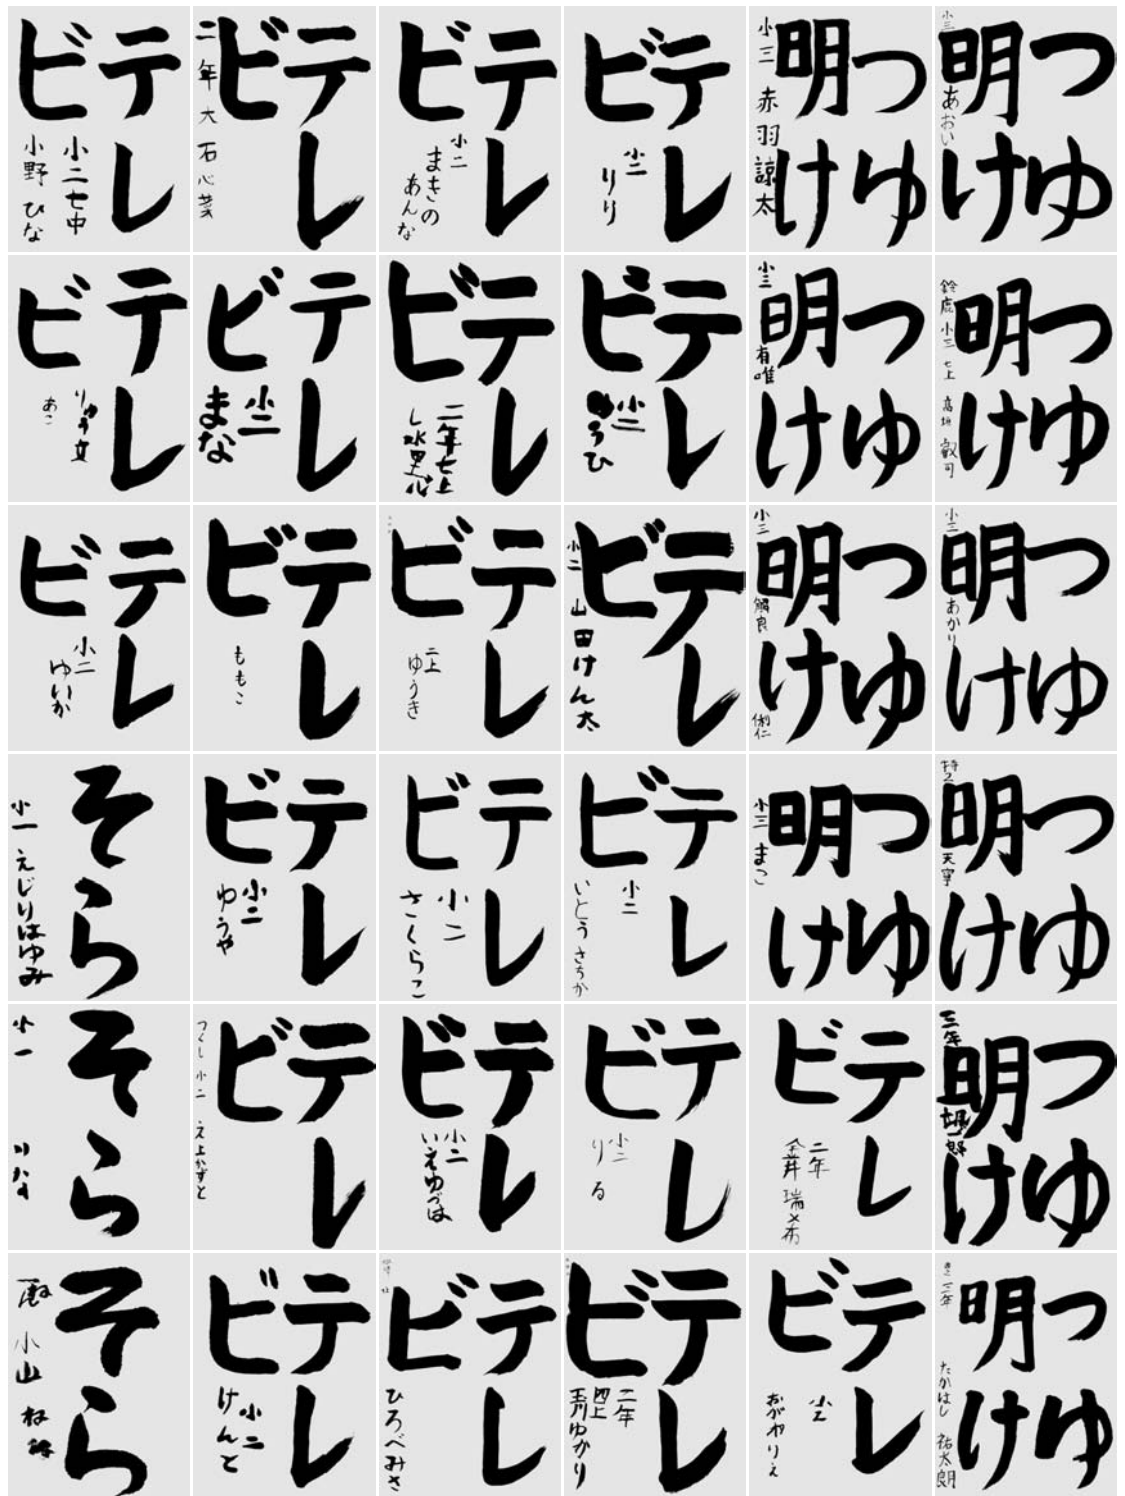 テレビ
小二七中
小野 ひな
テレビ
二年 大石心菜
テレビ
小二
まきの
あんな
テレビ
小二
りり
つゆ
明け
小三 赤羽諒太
つゆ
明け
小三
あおい
テレビ
あこ
テレビ
小二
まな
テレビ
二年七上
テレビ
小二
つゆ
明け
小三
有唯
つゆ
明け
鈴鹿 小三 七上 高垣 叡司
テレビ
小二
ゆいか
テレビ
ももこ
テレビ
二上
ゆうき
テレビ
小二 山田けん太
つゆ
明け
小三
つゆ
明け
小三
あかり
そら
小一 えじりはゆみ
テレビ
小二
ゆうや
テレビ
小二
さくらこ
テレビ
小二
いとうさちか
つゆ
明け
小三 まこ
つゆ
明け
天寧
そら
小一
りな
テレビ
つくし 小二
テレビ
小二
テレビ
小二
りる
テレビ
二年
つゆ
明け
三年
そら
小山
テレビ
小二
けんと
テレビ
ひろべみさ
テレビ
二年
四上
ゆかり
テレビ
小二
おがわりえ
つゆ
明け
三年
たかはし 祐太朗